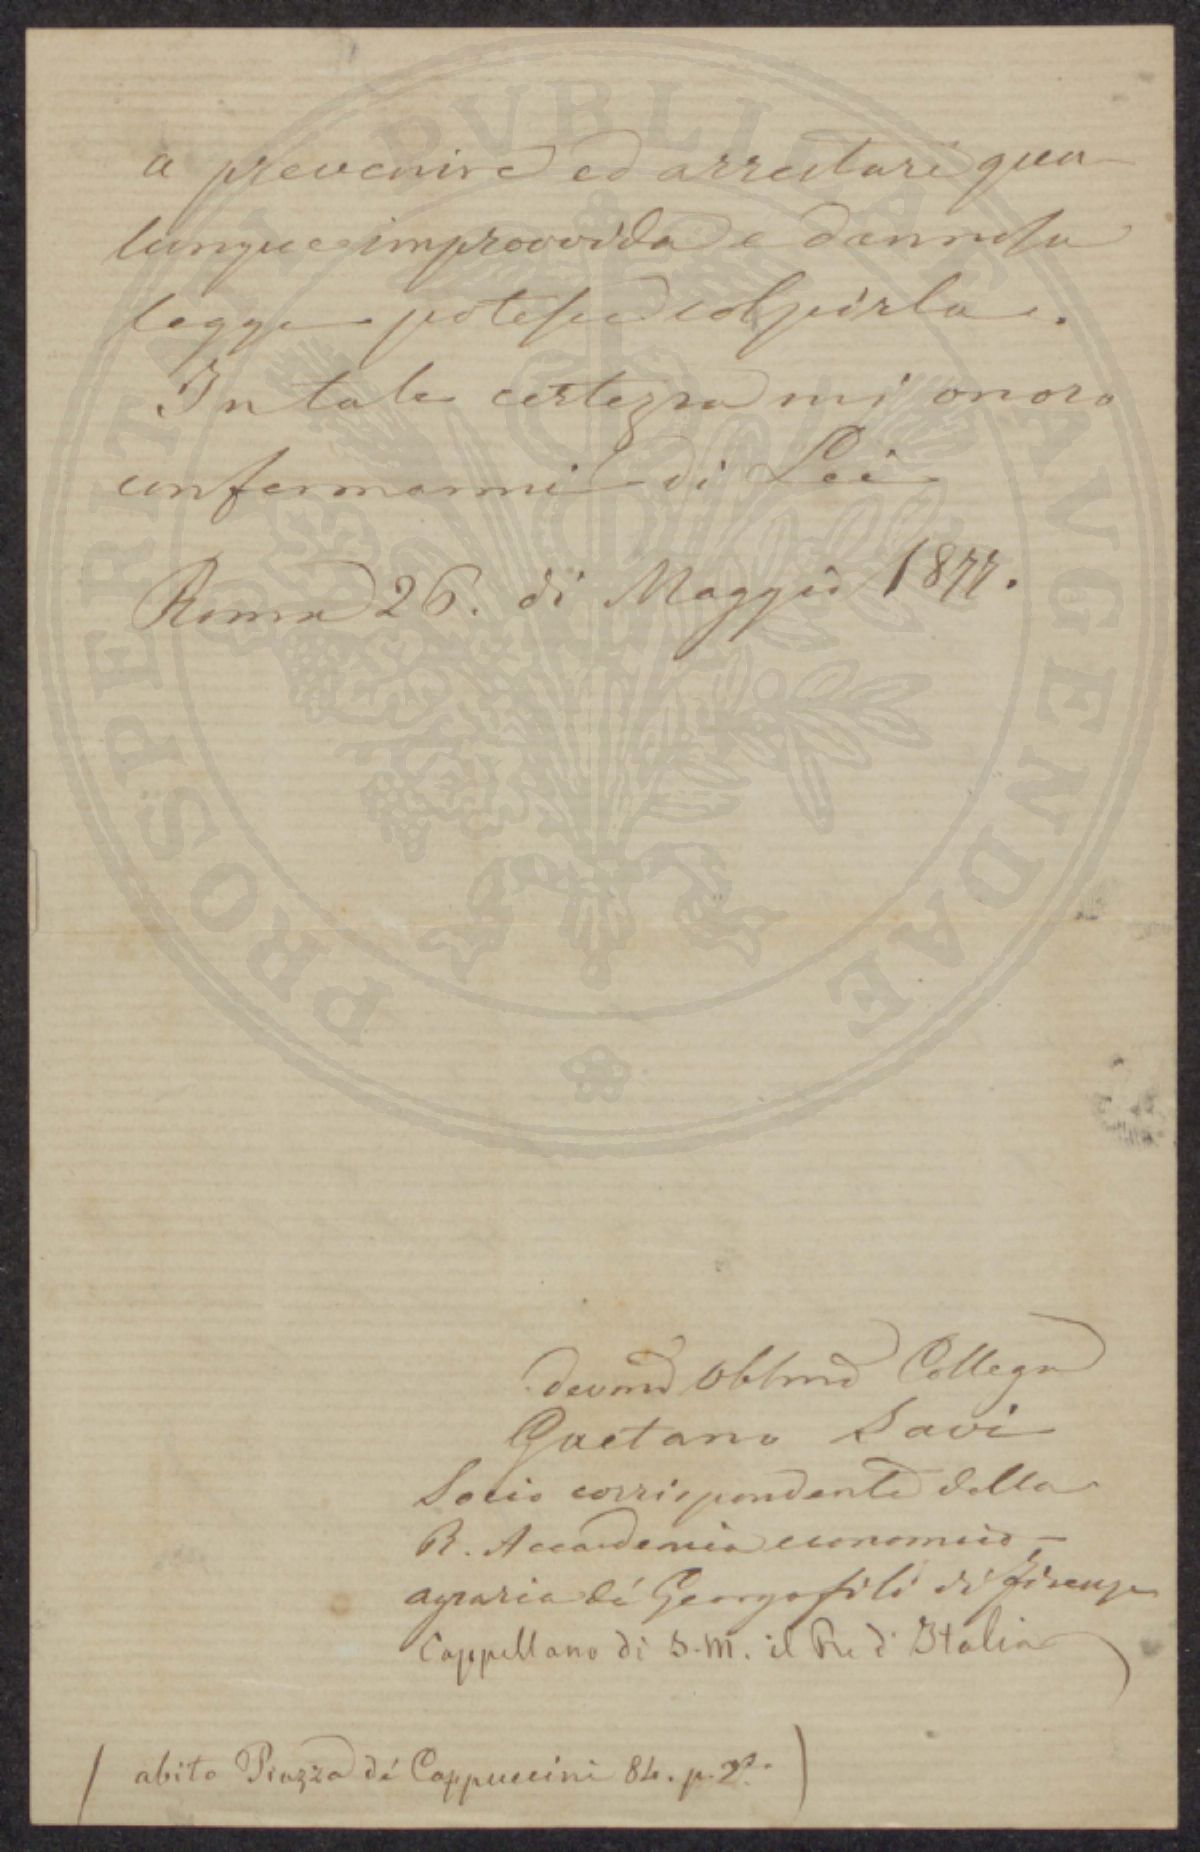 a prevenire ed arrestare qua-
lunque improvvida e dannosa
legge potesse colpirla.
In tale certezza mi onoro
confermarmi di Lei
Roma 26. di Maggio 1877.
devmo Obblmo Collega
Gaetano Savi
Socio corrispondente della
R. Accademia economico-
agraria dé Georgofili di Firenze
Cappellano di S. M. il Re d'Italia
(abito Piazza dé Cappuccini 84. p. 2º.)
PROSPERITATI PVBLICAE AVGENDAE